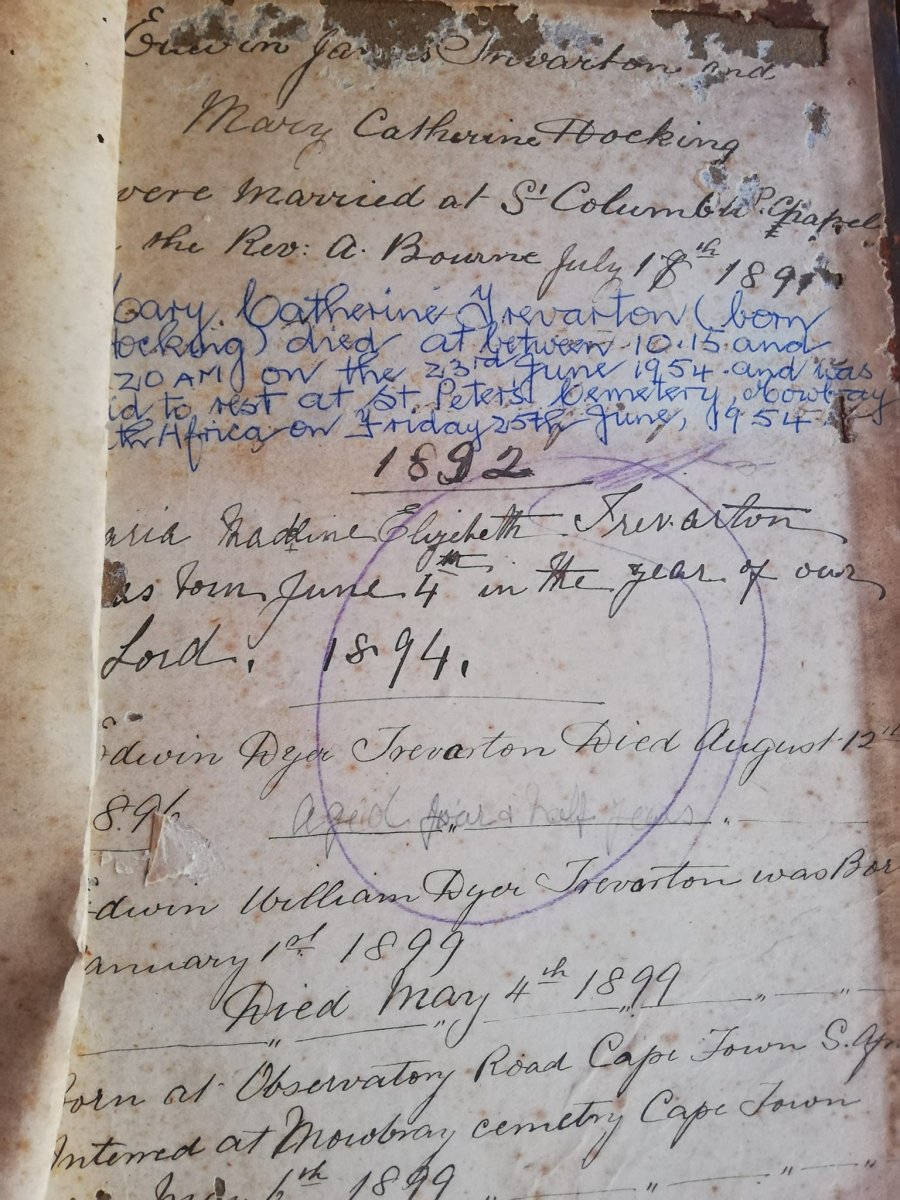 Edwin James Trevarton and
Mary Catherine Hocking
were Married at St Columb Chapel
the Rev: A. Bourne July 18th 189
ary Catherine Trevarton (born
ocking) died at between 10.15 and
20 AM on the 23rd June 1954 and was
id to rest at St. Peter's Cemetery, Mowbray
th Africa on Friday 25th June, 1954
1892
aria Elizebeth Trevarton
as born June 4th in the year of our
Lord. 1894.
dwin Dyer Trevarton Died August 12th
896
Aged four & half years
dwin William Dyer Trevarton was Bor
anuary 1st 1899
Died May 4th 1899
orn at Observatory Road Cape Town S. Afr
Interred at Mowbray cemetry Cape Town
May 6th 1899